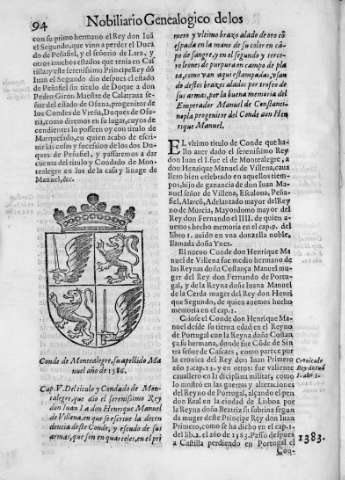 94
Nobiliario Genealogico de los
con su primo hermano el Rey don Iuã
el Segundo, que vino a perder el Duca
do de Peñafiel, y el señorio de Lara, y
otros muchos estados que tenia en Cas
tilla: y este serenissimo Principe Rey dõ
Iuan el Segundo dio despues el estado
de Peñafiel sin titulo de Duque a don
Pedro Giron Maestre de Calatrava se-
ñor del estado de Osuna, progenitor de
los Condes de Vreña, Duques de Osu-
na, como diremos en su lugar, cuyos de
cendientes lo posseen oy con titulo de
Marquesado, en quien acabo de escri-
bir las cosas y sucession de los dos Du-
ques de Peñafiel, y passaremos a dar
cuenta del titulo y Condado de Mon-
tealegre en los de la casa y linage de
Manuel, &c.
Conde de Montealegre, su apellido Ma
nuel año de 1386.
Cap. V. Del titulo y Condado de Mon-
tealegre, que dio el serenissimo Rey
don Iuan I. a don Henrique Manuel
de Villena, en que se escribe la decen
dencia deste Conde, y escudo de sus
armas, que son en quarteles, en el pri
mero y vltimo braço alado de oro cõ
espada en la mano de su color en cã-
po de sangre, y en el segundo y terce-
ro leones de purpura en campo de pla
ta, como van aqui estampadas, y vsan
de destos braços alados por trofeo de sus
armas, por la buena memoria del
Emperador Manuel de Constanti-
nopla progenitor del Conde don Hen
rique Manuel.
EL vltimo titulo de Conde que ha-
llo auer dado el serenissimo Rey
don Iuan el I. fue el de Montealegre, a
don Henrique Manuel de Villena, caua
llero bien celebrado en aquellos tiem-
pos, hijo de ganancia de don Iuan Ma-
nuel señor de Villena, Escalona, Peña-
fiel, Alarcõ, Adelantado mayor del Rey
no de Murcia, Mayordomo mayor del
Rey don Fernando el IIII. de quien a-
uemos hecho memoria en el cap.
del
libro 1. auido en vna donzella noble,
llamada doña Ynes.
El nueuo Conde don Henrique Ma
nuel de Villena fue medio hermano de
las Reynas doña Costança Manuel mu-
ger del Rey don Fernando de Portu-
gal, y de la Reyna doña Iuana Manuel
de la Cerda muger del Rey don Henri
que Segundo, de quien auemos hecho
memoria en el cap. 1.
Criose el Conde don Henrique Ma
nuel desde su tierna edad en el Reyno
de Portugal con la Reyna doña Costan
ça su hermana, donde fue Cõde de Sin
tra señor de Cascaes, como parece por
la cronica del Rey don Iuan Primero
y en otras: y fue valiente
cauallero en la disciplina militar, como
lo mostrò en las guerras y alteraciones
del Reyno de Portugal, alçando el pen
don Real en la ciudad de Lisboa por
la Reyna doña Beatriz su sobrina segun
da muger deste Principe Rey don Iuan
Primero, como se ha dicho en el cap. 1.
del lib. 2. el año de 1383. Passo despues
a Castilla perdiendo en Portugal el
Con-
1383.